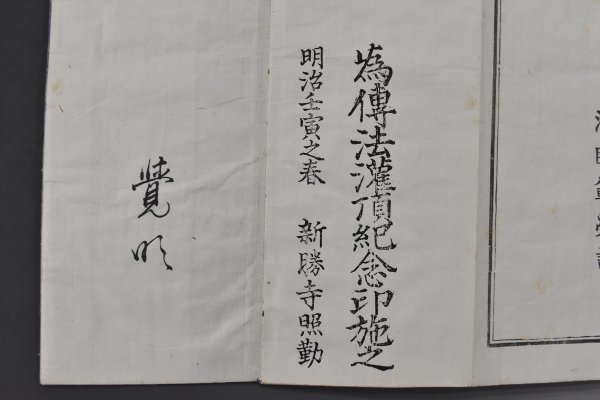 為傳法灌頂紀念印施之
明治壬寅之春 新勝寺照勤
覺明